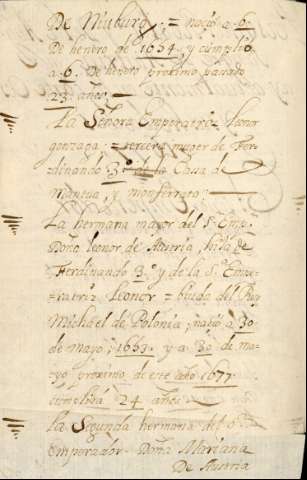 De Niuburg = nacio a 6.
De henero de 1654. y cumplio
a 6. De henero proximo pasado
23 años.
La Señora Emperatriz Leonor
gonzaga = tercera muger de Fer-
dinando 3º de la Casa de
Mantua, y monferrato:
La hermana mayor del Sr. Emp.
Doña Leonor de Austria, hija de
Ferdinando 3. y de la Sa. Empe-
ratriz Leonor = biuda del Rey
Michael de Polonia, nacio a 30
de mayo, 1653. y a 30 de ma-
yo proximo de este año 1677
cumplirá 24 años
la Segunda hermana del Sr.
emperador Doña Mariana
De Austria